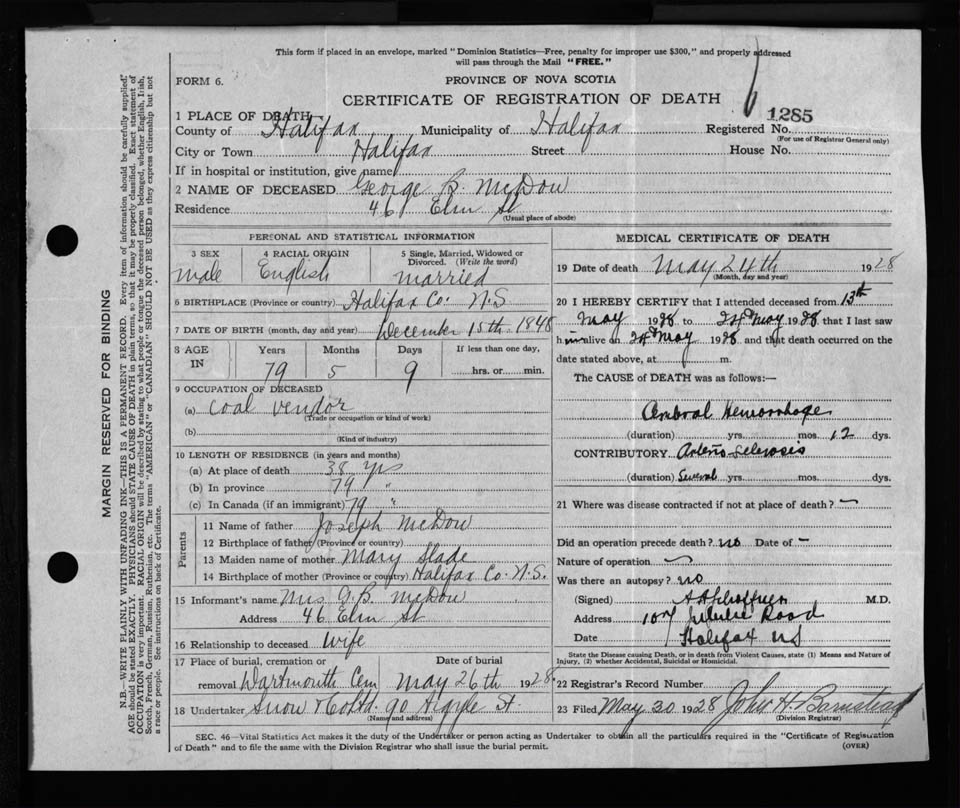 This form if placed in an envelope, marked "Dominion Statistics—Free, penalty for improper use $300," and properly addressed
will pass through the Mail "FREE."
FORM 6.
PROVINCE OF NOVA SCOTIA
CERTIFICATE OF REGISTRATION OF DEATH
6
1285
1 PLACE OF DEATH
County of Halifax Municipality of Halifax Registered No.
(For use of Registrar General only)
City or Town Halifax Street House No.
If in hospital or institution, give name
2 NAME OF DECEASED George B. McDow
Residence 46 Elm St
(Usual place of abode)
PERSONAL AND STATISTICAL INFORMATION
3 SEX 4 RACIAL ORIGIN 5 Single, Married, Widowed or Divorced. (Write the word)
male English married
6 BIRTHPLACE (Province or country) Halifax Co. N.S.
7 DATE OF BIRTH (month, day and year) December 15th. 1848
8 AGE IN Years Months Days If less than one day,
79 5 9 hrs. or min.
9 OCCUPATION OF DECEASED
(a) Coal vendor
(Trade or occupation or kind of work)
(b)
(Kind of industry)
10 LENGTH OF RESIDENCE (in years and months)
(a) At place of death 38 yrs
(b) In province 79 "
(c) In Canada (if an immigrant) 79 "
Parents
11 Name of father Joseph McDow
12 Birthplace of father (Province or country)
13 Maiden name of mother Mary Slade
14 Birthplace of mother (Province or country) Halifax Co. N.S.
15 Informant's name Mrs G. B. McDow
Address 46 Elm St
16 Relationship to deceased Wife
17 Place of burial, cremation or removal Date of burial
Dartmouth Cem May 26th 1928
18 Undertaker Snow & Co Ltd. 90 Argyle St.
(Name and address)
MEDICAL CERTIFICATE OF DEATH
19 Date of death May 24th 1928
(Month, day and year)
20 I HEREBY CERTIFY that I attended deceased from 13th
May 1928 to 24 May 1928 that I last saw
h im alive on 24 May 1928 and that death occurred on the
date stated above, at m.
The CAUSE of DEATH was as follows:—
Cerebral Hemorrhage
(duration) yrs. mos. 12 dys.
CONTRIBUTORY Arterio-Sclerosis
(duration) Several yrs. mos. dys.
21 Where was disease contracted if not at place of death? —
Did an operation precede death? no Date of —
Nature of operation —
Was there an autopsy? no
(Signed) M.D.
Address 107 Road
Date Halifax NS
State the Disease causing Death, or in death from Violent Causes, state (1) Means and Nature of
Injury, (2) whether Accidental, Suicidal or Homicidal.
22 Registrar's Record Number
23 Filed May 30 1928 John H. Barnstead
(Division Registrar)
SEC. 46—Vital Statistics Act makes it the duty of the Undertaker or person acting as Undertaker to obtain all the particulars required in the "Certificate of Registration
of Death" and to file the same with the Division Registrar who shall issue the burial permit.
(OVER)
MARGIN RESERVED FOR BINDING
N.B.—WRITE PLAINLY WITH UNFADING INK—THIS IS A PERMANENT RECORD. Every item of information should be carefully supplied.
AGE should be stated EXACTLY. PHYSICIANS should STATE CAUSE OF DEATH in plain terms, so that it may be properly classified. Exact statement of
OCCUPATION is very important. RACIAL ORIGIN will be described by stating to what people or tongue the deceased person belonged, whether English, Irish,
Scotch, French, German, Russian, Ruthenian, etc. The terms "AMERICAN" or "CANADIAN" SHOULD NOT BE USED as they express citizenship but not
a race or people. See instructions on back of Certificate.